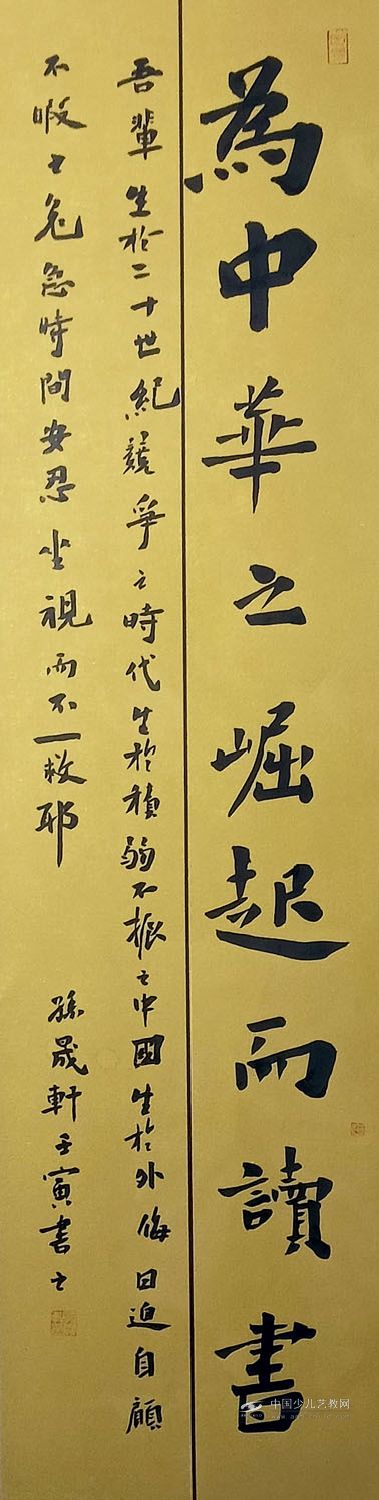 為中華之崛起而讀書
吾輩生於二十世紀競爭之時代生於積弱不振之中國生於外侮日迫自顧
不暇之危急時間安忍坐視而不一救耶
孫晟軒壬寅書之
中国少儿艺教网